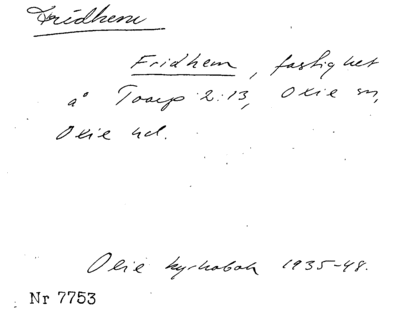 Fridhem
Fridhem, fastighet
å Toarp 2:13, Oxie sn,
Oxie hd.
Oxie kyrkobok 1935-48.
Nr 7753